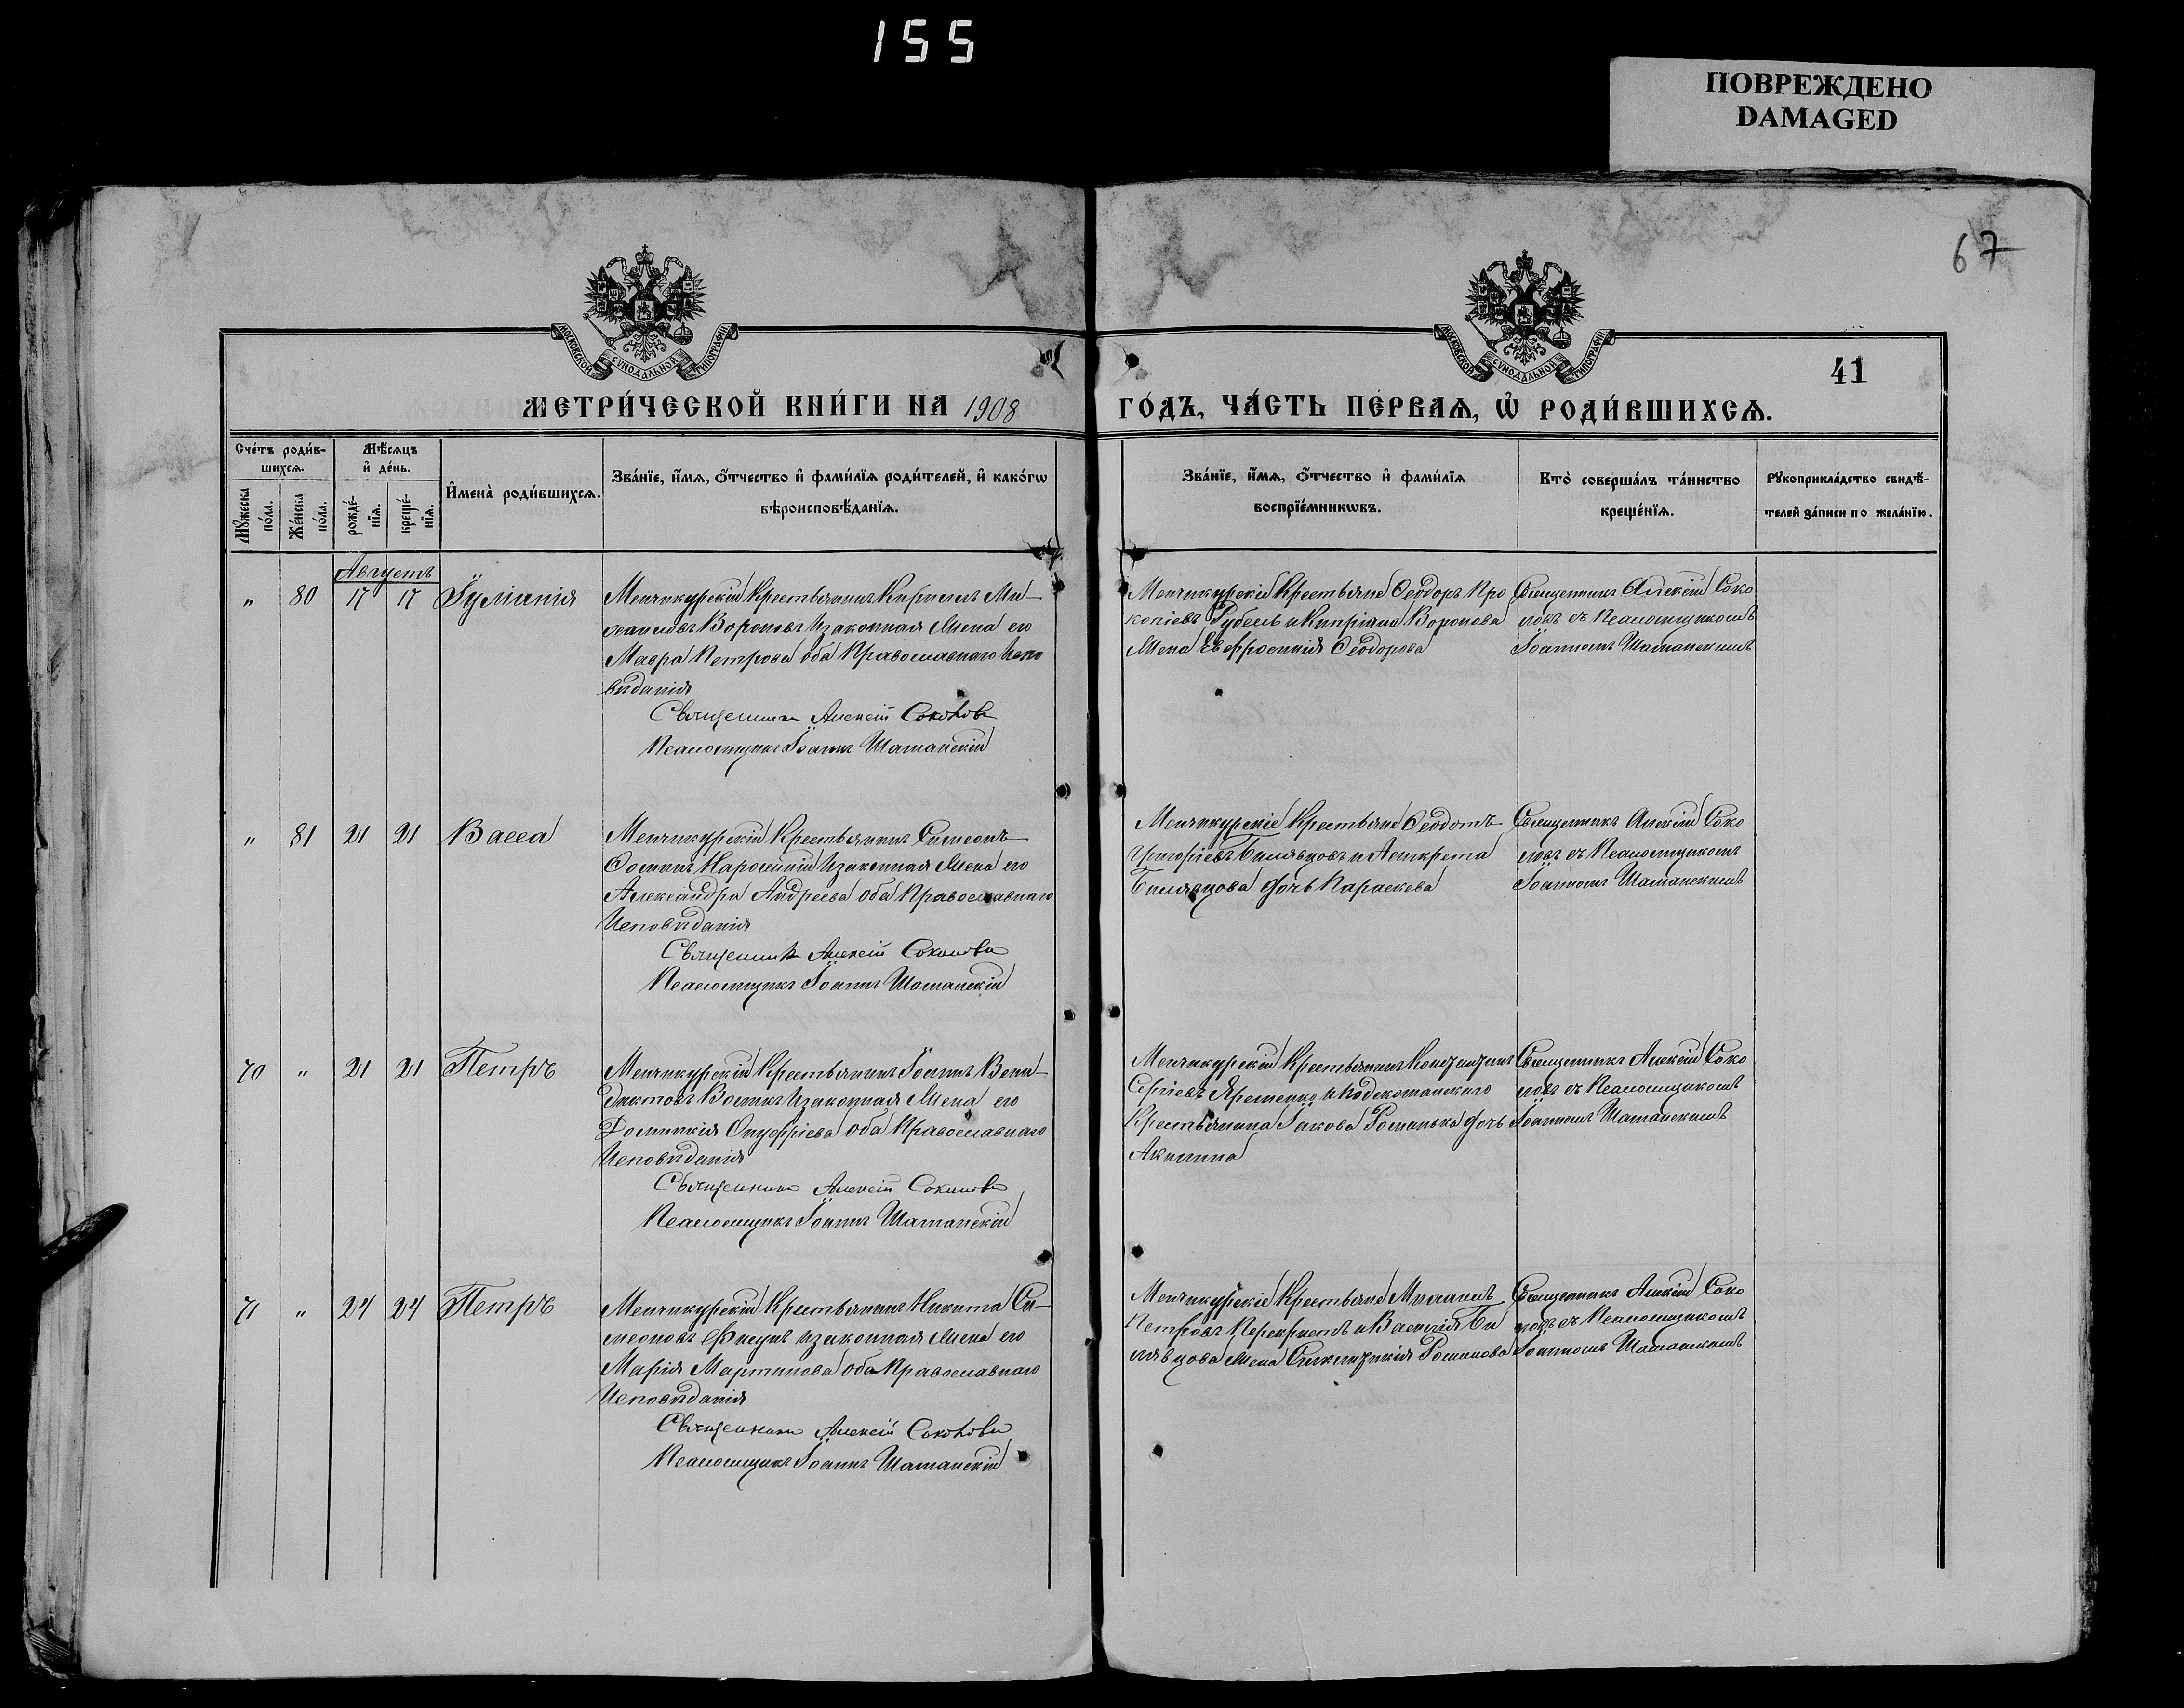 155
ПОВРЕЖДЕНО
DAMAGED
67
МОСКОВСКОЙ СѴНОДАЛЬНОЙ ТИПОГРАФІИ
МОСКОВСКОЙ СѴНОДАЛЬНОЙ ТИПОГРАФІИ
41
МЕТРИ́ЧЕСКОЙ КНИ́ГИ НА 1908
ГО́ДЪ, ЧА́СТЬ ПЕ́РВАѦ, Ѡ҆ РОДИ́ВШИХСѦ.
Сче́тъ роди́в-
шихсѧ.
Мѣ́сѧцъ
и҆ де́нь.
Мꙋ́жеска
по́ла.
Же́нска
по́ла.
рожде́-
нїѧ.
креще́-
нїѧ.
И҆мена̀ роди́вшихсѧ.
Зва́нїе, и҆́мѧ, ѻ҆́тчество и҆ фами́лїѧ роди́телей, и҆ како́гѡ
вѣроисповѣ́данїѧ.
Зва́нїе, и҆́мѧ, ѻ҆́тчество и҆ фами́лїѧ
воспрїе́мникѡвъ.
Кто̀ соверша́лъ та́инство
креще́нїѧ.
Рꙋкоприкла́дство свидѣ́-
телей за́писи по жела́нїю.
Августъ
" 80 17 17 Іуліанія
Менчикурскій Крестьянинъ Кириллъ Ми-
хаиловъ Вороновъ и законная жена его
Мавра Петрова оба Православнаго Испо
вѣданія
Священникъ Алексій Соколовъ
Псаломщикъ Іоаннъ Шатанскій
Менчикурскіе Крестьяне Ѳеодоръ Про
копіевъ Рубель и Кипріана Воронова
жена Евфросинія Ѳеодорова
Священникъ Алексій Соко
ловъ съ Псаломщикомъ
Іоанномъ Шатанскимъ
" 81 21 21 Васса
Менчикурскій Крестьянинъ Симеонъ
Ѳоминъ и законная жена его
Александра Андреева оба Православнаго
Исповѣданія
Священникъ Алексій Соколовъ
Псаломщикъ Іоаннъ Шатанскій
Менчикурскіе Крестьяне Ѳеодотъ
Григоріевъ Билявцовъ и
Билявцова дочь Параскева
Священникъ Алексій Соко
ловъ съ Псаломщикомъ
Іоанномъ Шатанскимъ
70 " 21 21 Петръ
Менчикурскій Крестьянинъ Іоаннъ Вени-
диктовъ и законная жена его
Домникія Онуфріева оба Православнаго
Исповѣданія
Священникъ Алексій Соколовъ
Псаломщикъ Іоаннъ Шатанскій
Менчикурскій Крестьянинъ
Сергіевъ Яременко и
Крестьянина Іакова Романька дочь
Акилина
Священникъ Алексій Соко
ловъ съ Псаломщикомъ
Іоанномъ Шатанскимъ
71 " 24 24 Петръ
Менчикурскій Крестьянинъ Никита Си-
меоновъ и законная жена его
Марія Мартинова оба Православнаго
Исповѣданія
Священникъ Алексій Соколовъ
Псаломщикъ Іоаннъ Шатанскій
Менчикурскіе Крестьяне Михаилъ
Петровъ Перехристъ и Василія Би
лявцова жена Синклитикія Романова
Священникъ Алексій Соко
ловъ съ Псаломщикомъ
Іоанномъ Шатанскимъ